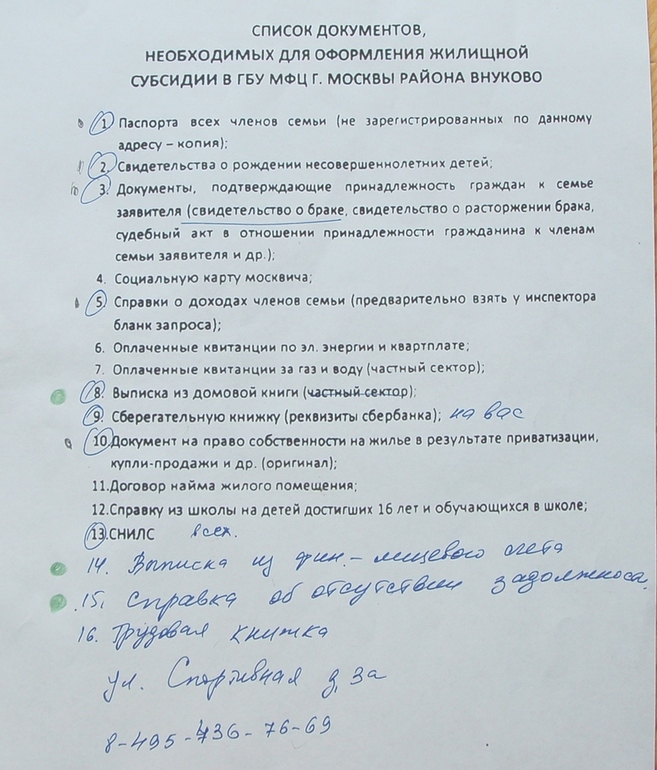 СПИСОК ДОКУМЕНТОВ,
НЕОБХОДИМЫХ ДЛЯ ОФОРМЛЕНИЯ ЖИЛИЩНОЙ
СУБСИДИИ В ГБУ МФЦ Г. МОСКВЫ РАЙОНА ВНУКОВО
1. Паспорта всех членов семьи (не зарегистрированных по данному
адресу – копия);
2. Свидетельства о рождении несовершеннолетних детей;
3. Документы, подтверждающие принадлежность граждан к семье
заявителя (свидетельство о браке, свидетельство о расторжении брака,
судебный акт в отношении принадлежности гражданина к членам
семьи заявителя и др.);
4. Социальную карту москвича;
5. Справки о доходах членов семьи (предварительно взять у инспектора
бланк запроса);
6. Оплаченные квитанции по эл. энергии и квартплате;
7. Оплаченные квитанции за газ и воду (частный сектор);
8. Выписка из домовой книги (частный сектор);
9. Сберегательную книжку (реквизиты сбербанка); на вас
10.Документ на право собственности на жилье в результате приватизации,
купли-продажи и др. (оригинал);
11.Договор найма жилого помещения;
12.Справку из школы на детей достигших 16 лет и обучающихся в школе;
13.СНИЛС всех.
14. Выписка из фин.-лицевого счета
15. Справка об отсутствии задолжноса
16. Трудовая книжка
ул. Спортивная д. 3а
8-495-736-76-69